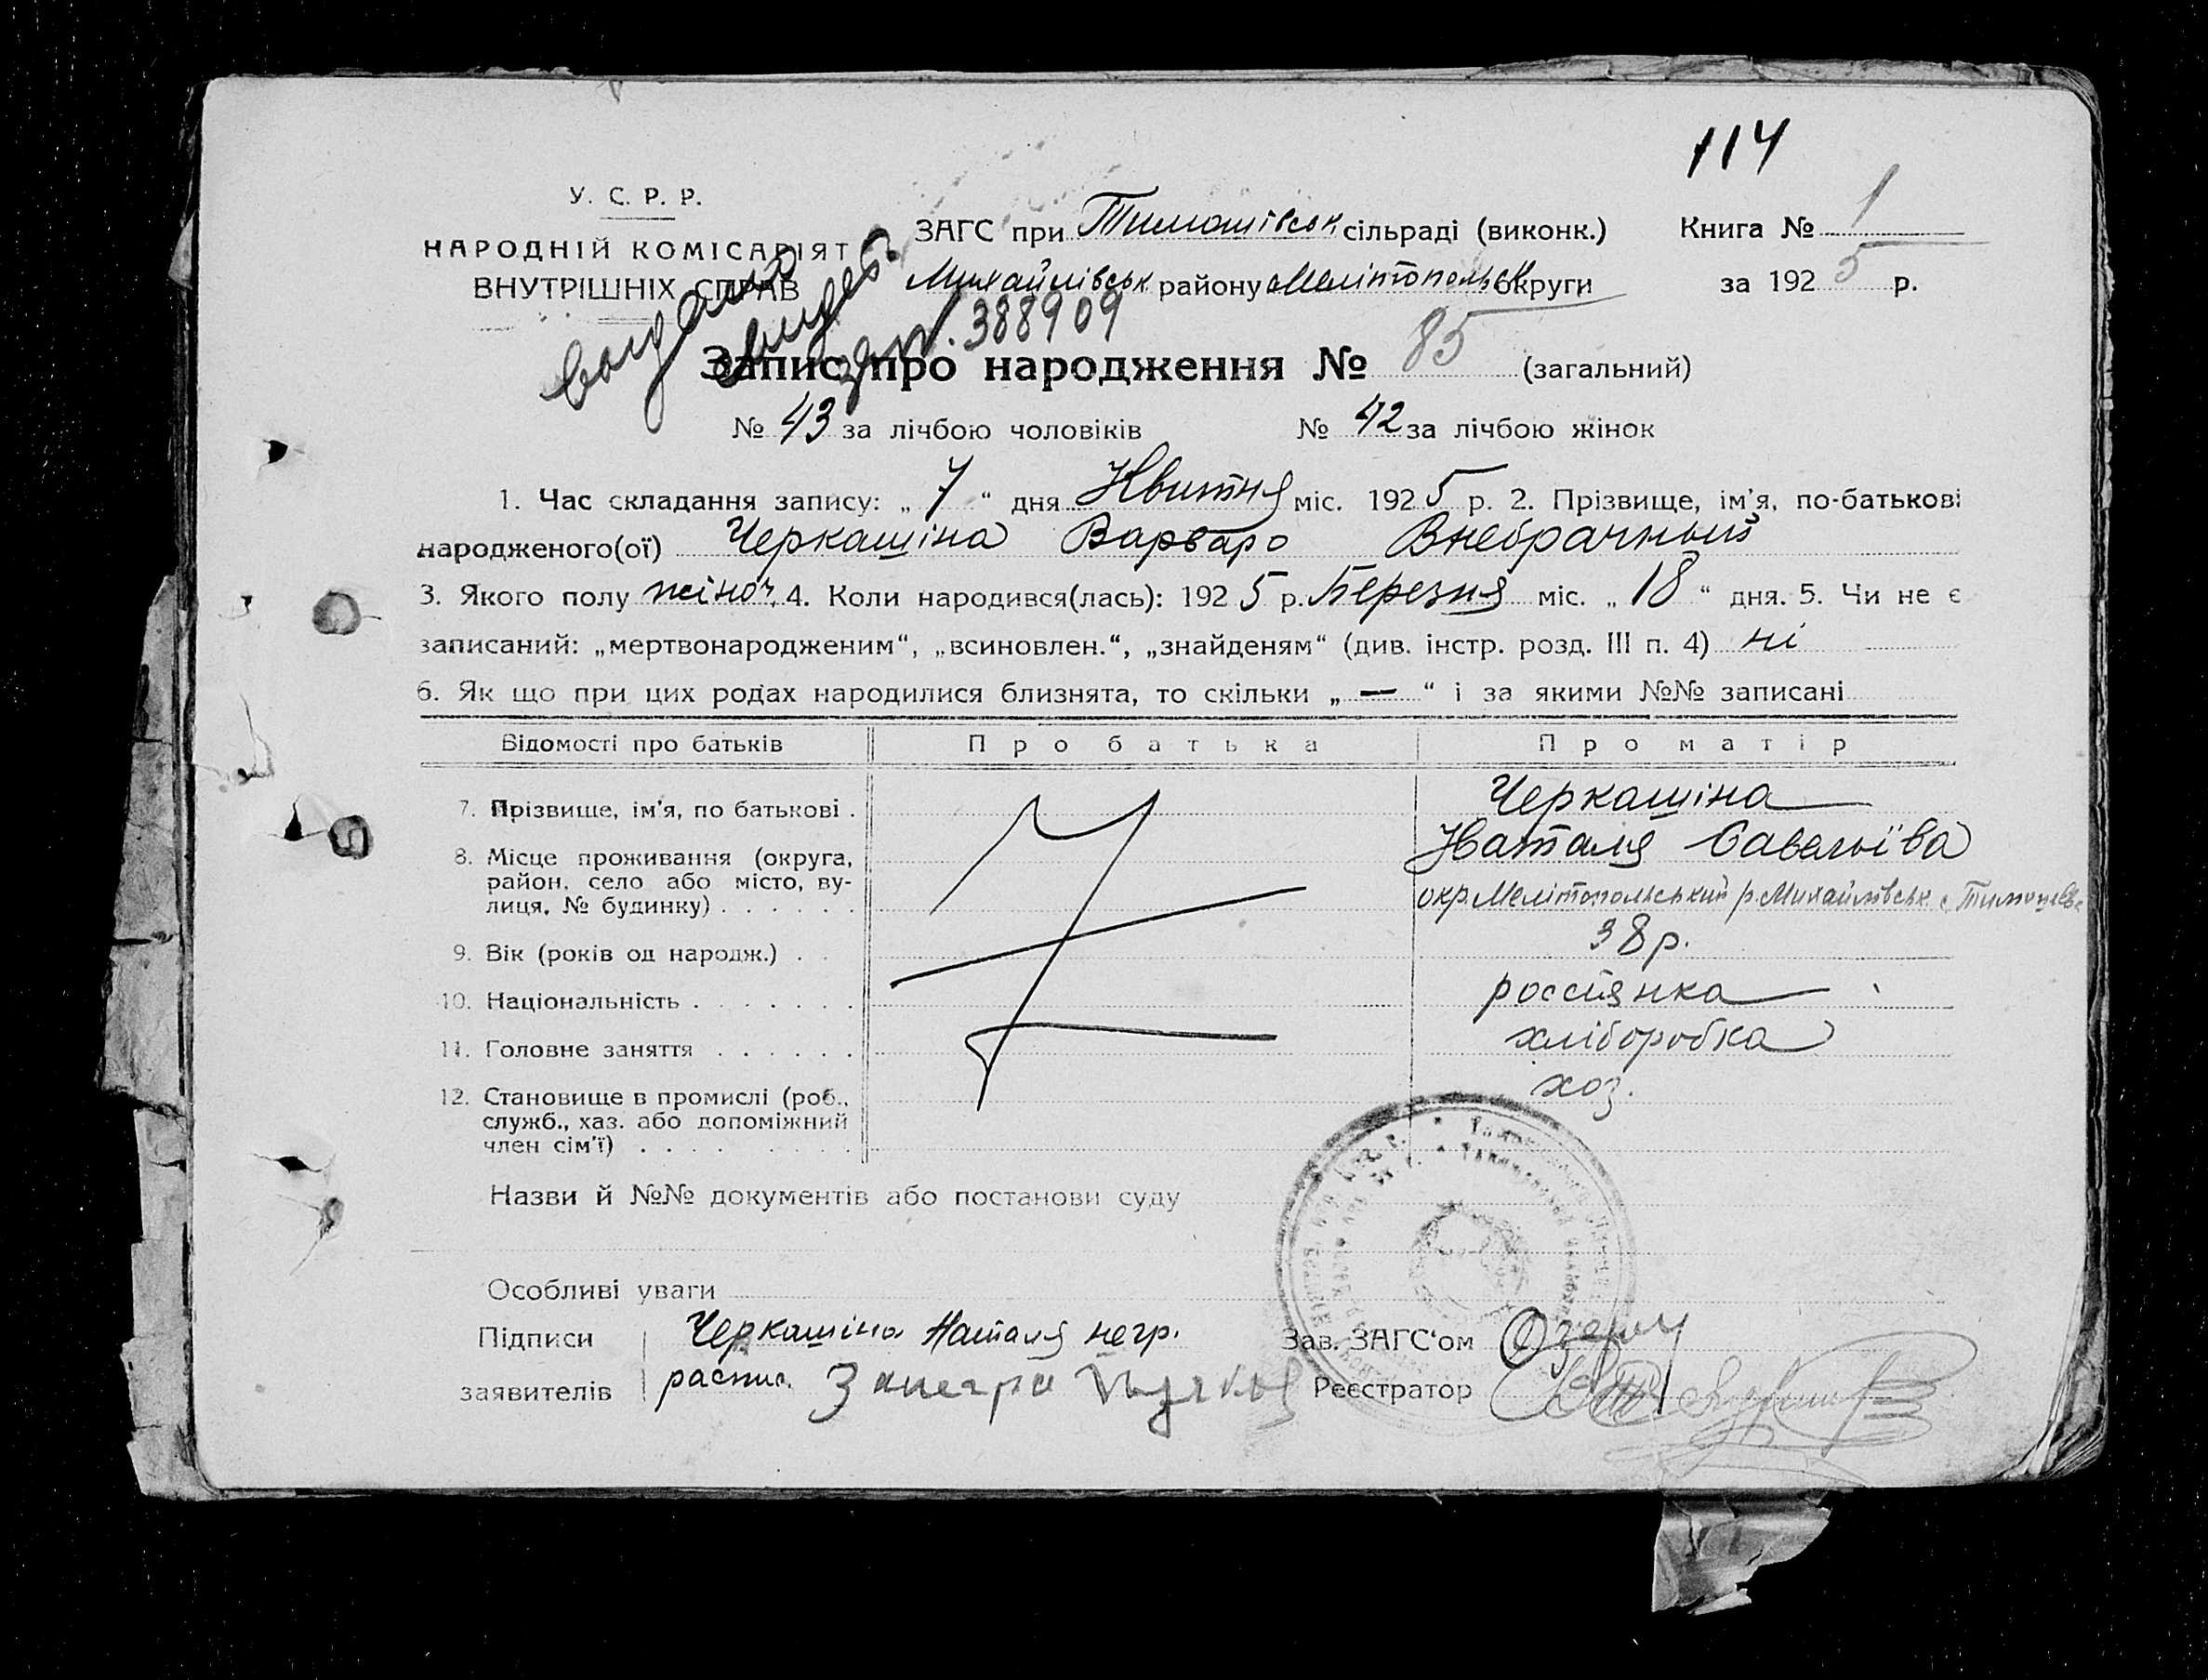 114
У. С. Р. Р.
НАРОДНІЙ КОМІСАРІЯТ
ВНУТРІШНІХ СПРАВ
ЗАГС при Тимошівськ сільраді (виконк.) Книга № 1
Михайлівськ району Мелітопольськ округи за 1925 р.
выдано
свидет.
388909
Запис про народження № 85 (загальний)
№ 43 за лічбою чоловіків № 42 за лічбою жінок
1. Час складання запису: „ 7 “ дня Квитня міс. 1925 р. 2. Прізвище, ім’я, по-батькові
народженого(ої) Черкашіна Варвара Внебрачный
3. Якого полу жіноч. 4. Коли народився(лась): 1925 р. Березня міс. „ 18 “ дня. 5. Чи не є
записаний: „мертвонародженим“, „всиновлен.“, „знайденям“ (див. інстр. розд. III п. 4) ні
6. Як що при цих родах народилися близнята, то скільки „ — “ і за якими №№ записані
Відомості про батьків Про батька Про матір
7. Прізвище, ім’я, по батькові . Черкашіна
Наталя Савельїва
8. Місце проживання (округа,
район, село або місто, ву-
лиця, № будинку) . . . . . . окр. Мелітопольський р. Михайлівськ с.
9. Вік (років од народж.) . . 38 р.
10. Національність . . . . . . . россіянка
11. Головне заняття . . . . . . хліборобка
12. Становище в промислі (роб., хоз.
служб., хаз. або допоміжний
член сім’ї) . . . . . . . .
Назви й №№ документів або постанови суду
Особливі уваги
Підписи Черкашіна Наталя негр. Зав. ЗАГС‘ом
заявителів распис. Реєстратор